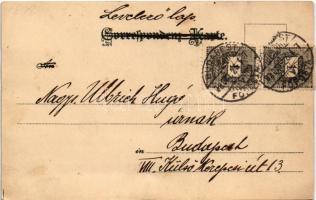 Levelező lap.
Correspondenz-Karte.
An
Nagys. Ulbrich Hugó
úrnak
in Budapest
VIII. Külső Kerepesi út 13